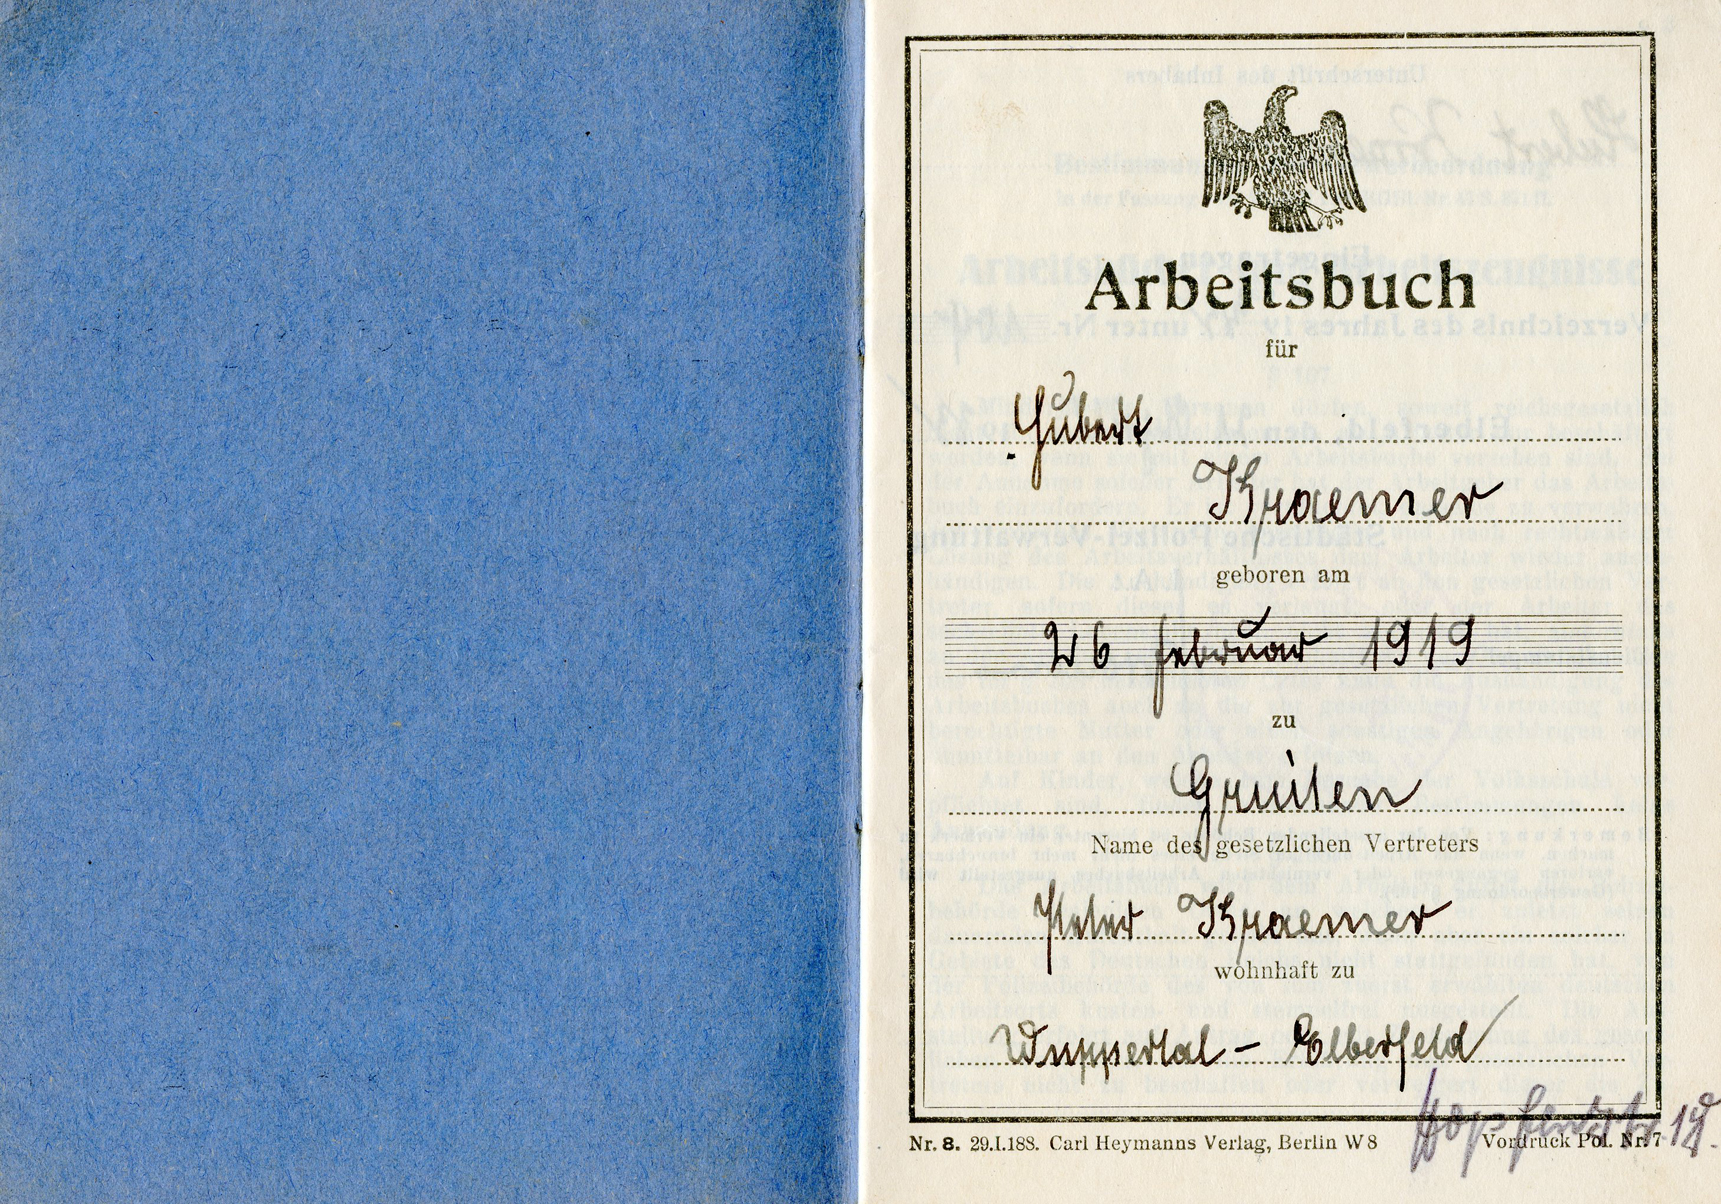 Arbeitsbuch
für
Hubert
Kraemer
geboren am
26 februar 1919
zu
Gruiten
Name des gesetzlichen Vertreters
Peter Kraemer
wohnhaft zu
Wuppertal - Elberfeld
Nr. 8. 29.I.188. Carl Heymanns Verlag, Berlin W 8 Vordruck Pol. Nr. 7